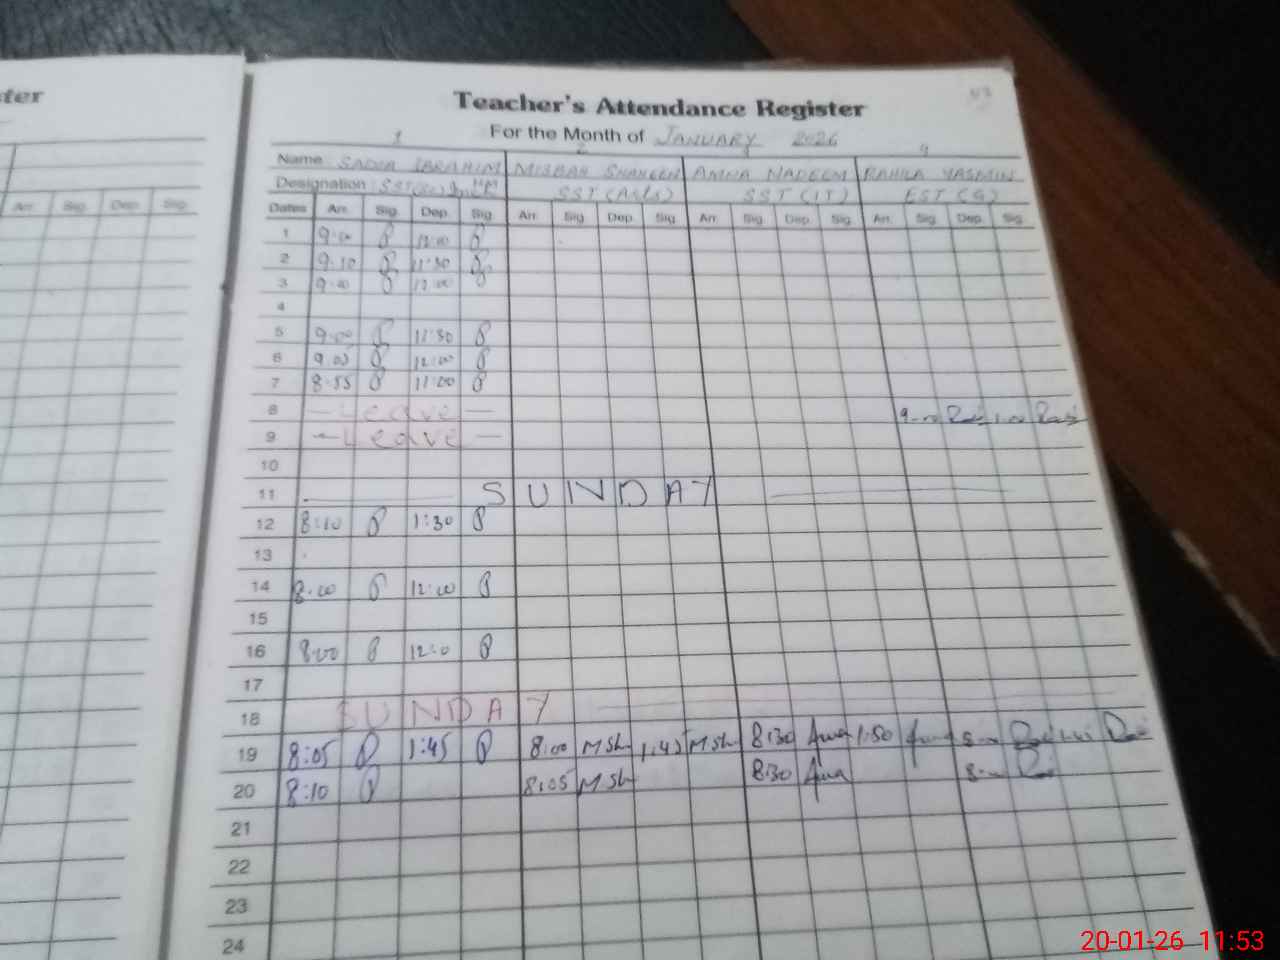 ter
Teacher's Attendance Register
For the Month of JANUARY 2026
1 2 3 4
Name SADIA IBRAHIM MISBAH SHAHEEN AMNA NADEEM RAHILA YASMIN
Designation SST(Sc) SST (Arts) SST (IT) EST (G)
Arr. Sig. Dep. Sig.
Dates Arr. Sig. Dep. Sig. Arr. Sig. Dep. Sig. Arr. Sig. Dep. Sig. Arr. Sig. Dep. Sig.
1 9:00 12:00
2 9:10 11:30
3 9:00 12:00
4
5 9:00 11:30
6 9:05 12:00
7 8:55 11:20
8 — Leave — 9:00 1:00
9 — Leave —
10
11 SUNDAY
12 8:10 1:30
13
14 8:00 12:00
15
16 8:00 12:0
17
18 SUNDAY
19 8:05 1:45 8:00 MSh 1:45 MSh 8:30 1:50
20 8:10 8:05 MSh 8:30
21
22
23
24
20-01-26 11:53